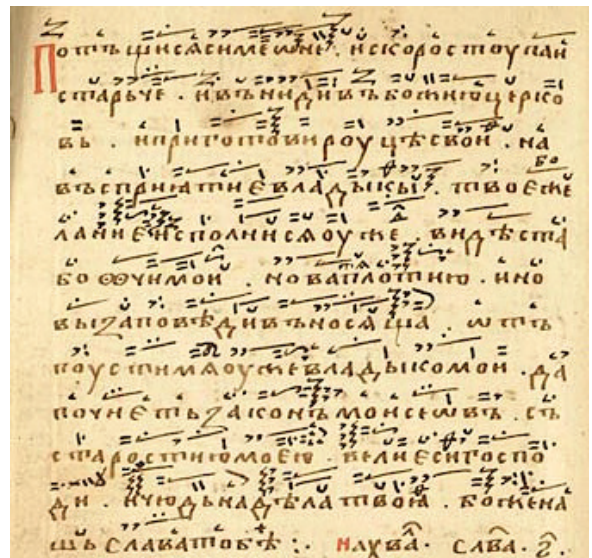 Потъшисѧ симеѡне · и скоро стоупаи
старьче · и вънидивъ божию церко
вь · и приготови роуцѣ свои · на
въсприѧтие владыкы · твое же
лание исполнисѧ оуже · видѣста
бо ѻчи мои · нова плотию · ино
вы заповѣди въносѧща · ѡтъ
поустимѧ оуже владыко мои · да
почиеть законъ моисеѡвъ · съ
старостию моею · велие си госпо
ди · и чюдьна дѣла твоꙗ · боже на
шь слава тобѣ :·